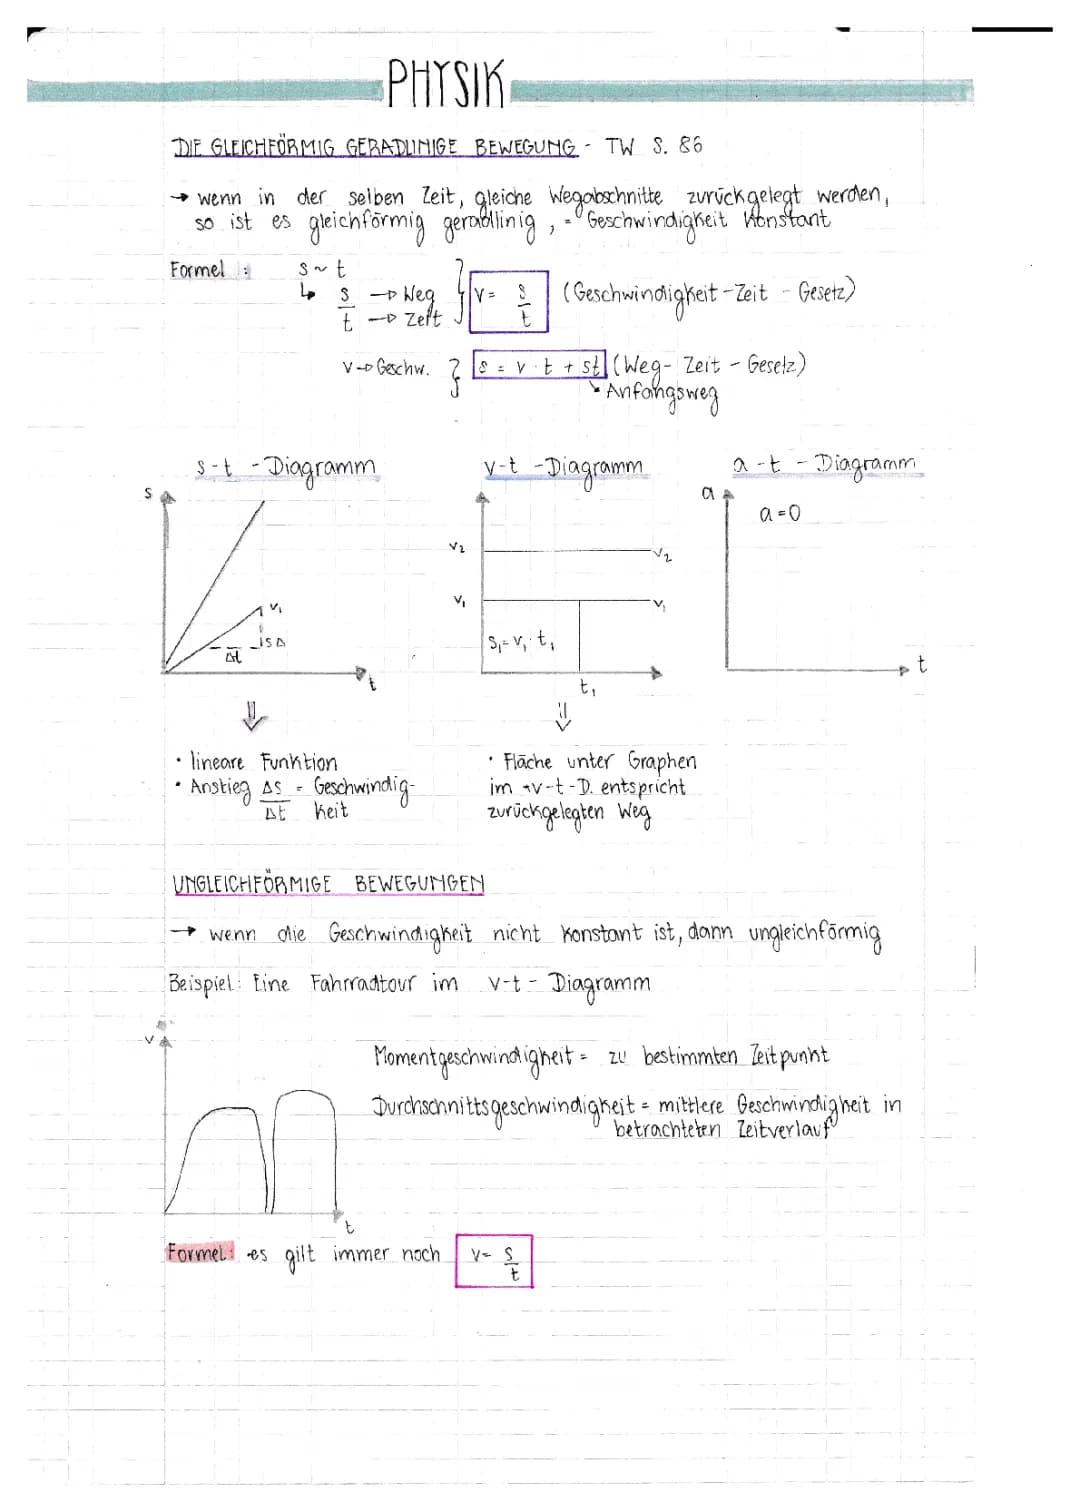 PHYSIK
DIE GLEICHFÖRMIG GERADLINIGE BEWEGUNG - TW S. 86
→ wenn in der selben Zeit, gleiche Wegabschnitte zurückgelegt werden,
so ist es gleichförmig geradlinig, = Geschwindigkeit konstant
Formel :
s ~ t
↳ s → Weg
t → Zeit
} v = s/t (Geschwindigkeit - Zeit - Gesetz)
v → Geschw. } s = v · t + st (Weg - Zeit - Gesetz)
↘ Anfangsweg
s-t - Diagramm
v-t - Diagramm
a-t - Diagramm
s
v₁
Δt
sΔ
t
v₂
v₂
v₁
v₁
s₁ = v₁ · t₁
t₁
a
a = 0
t
⇓
⇓
• lineare Funktion
• Anstieg Δs/Δt = Geschwindig-
keit
• Fläche unter Graphen
im v-t-D. entspricht
zurückgelegten Weg
UNGLEICHFÖRMIGE BEWEGUNGEN
→ wenn die Geschwindigkeit nicht konstant ist, dann ungleichförmig
Beispiel: Eine Fahrradtour im v-t - Diagramm
v
t
Momentgeschwindigkeit = zu bestimmten Zeitpunkt
Durchschnittsgeschwindigkeit = mittlere Geschwindigkeit in
betrachteten Zeitverlauf
Formel: es gilt immer noch v = s/t